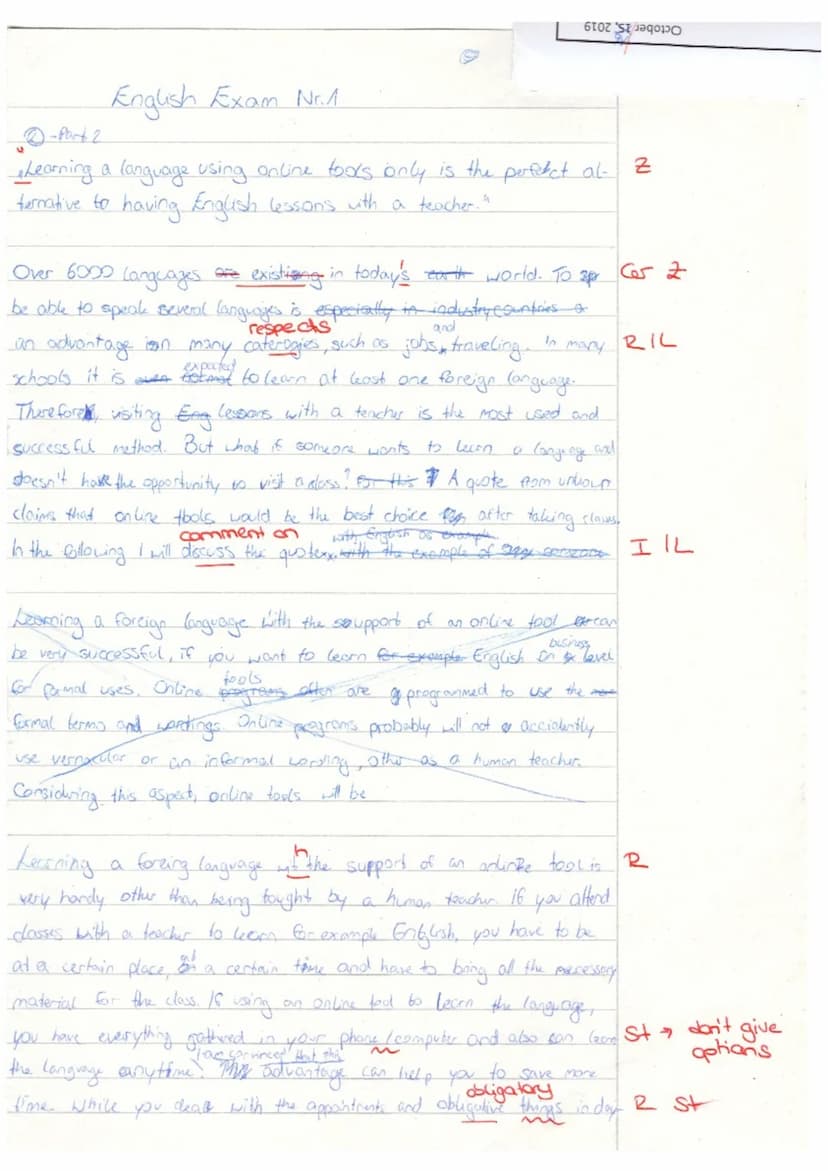 October 15, 2019
English Exam Nr.1
② -Part 2
„Learning a language using online tools only is the perfekct al- Z
ternative to having English lessons with a teacher."
Over 6000 languages are existiong in today's earth world. To sp Ger Z
be able to speak several languages is especially in industry countries a
respects and
an advantage ion many caterogies, such as jobs, traveling. In many R IL
expected
schools it is even to learn at least one foreign language.
Therefore, visiting Eng lessons with a teacher is the most used and
successful method. But what if someone wants to learn a language and
doesn't have the opportunity to visit a class? For this A quote from unkoun
claims that online tools would be the best choice after taking classes.
comment on with English as example
In the following I will discuss the quote with the example of I IL
Learning a foreign language with the support of an online tool can
business
be very successful, if you want to learn for example English on level
tools
for formal uses. Online programs often are programmed to use the
formal terms and wordings. Online programs probably will not accidently
use vernacular or an informal wording, other as a human teacher.
Considuring this aspect, online tools will be
h
Learning a foreing language wit the support of an online tool is R
very handy other than being tought by a human teacher. If you attend
classes with a teacher to learn for example English, you have to be
at
at a certain place, a certain time and have to bring all the necessary
material for the class. If using an online tool to learn the language,
you have everything gathered in your phone/computer and also can learn St → don't give
options
I am convinced that this
the language anytime. advantage can help you to save more
obligatory
time. While you deal with the appointments and obligative things in day- R St